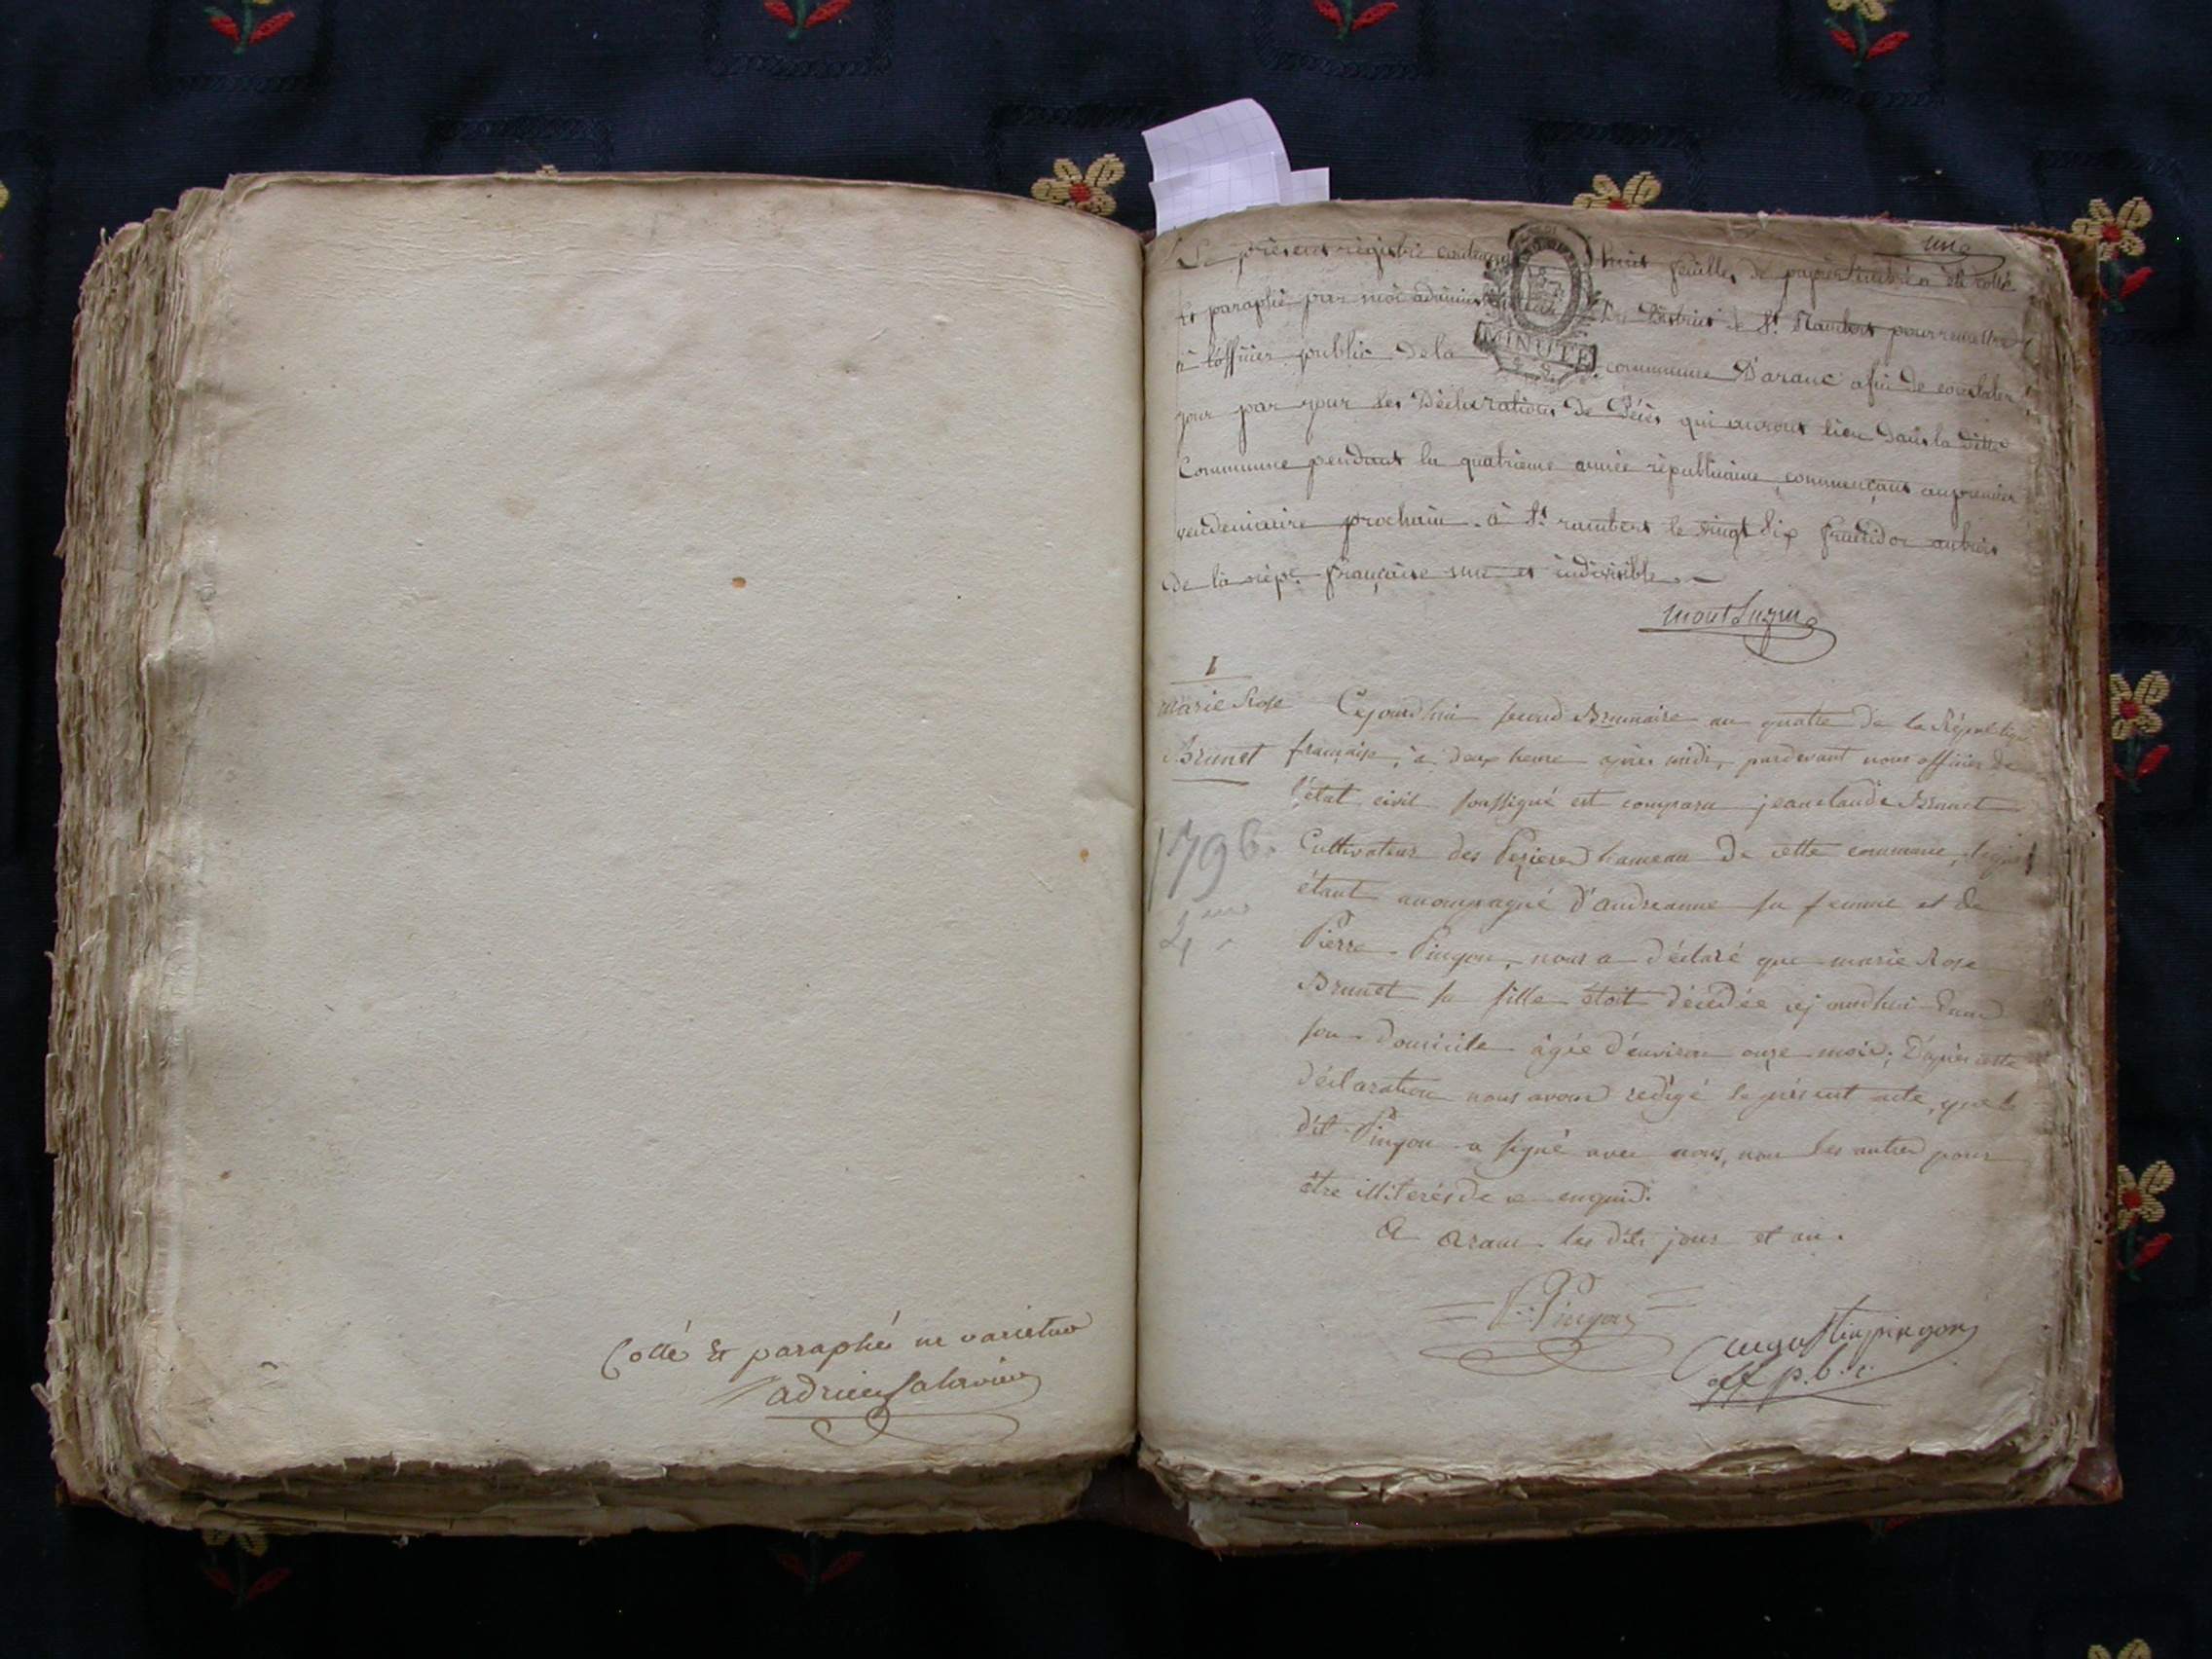 Cotté Et paraphé ne varietur
adrien
une
Le present régistre contenant huit feuilles de papier timbré a été cotté
Et paraphé par moi administrateur du District de St. Rambert pour remettre
à l'officier public de la commune D'aranc afin de constater
jour par jour les Déclarations de Décès qui auront lieu Dans la ditte
Commune pendant la quatrieme année républicaine, commençant au premier
vendemiaire prochain. à St. rambert le vingt six fructidor an trois
de la répe. française une et indivisible.
MINUTE
1
Marie Rose
Brunet
1796.
4
Cejourdhui second Brumaire an quatre de la République
française, à deux heure après midi, pardevant nous officier de
l'état civil soussigné est comparu jean claude Brunet
Cultivateur des Pezieres hameau de cette commune, lequel
étant acompagné d'andreanne sa femme et de
Pierre Pingon, nous a déclaré que marie Rose
Brunet sa fille étoit décédée cejourdhui dans
son domicile âgée d'environ onze mois; D'après cette
déclaration nous avons redigé le présent acte, que le
dit Pingon a signé avec nous, non les autres pour
être illiterés de ce enquis.
A Aranc les dits jour et an.
P. Pingon
augustin pingon
off p. b. c.